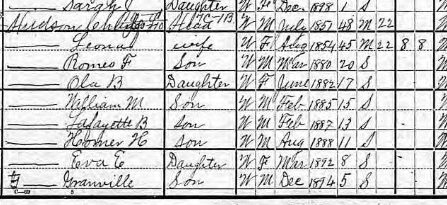 Sarah J Daughter W F Dec 1898 1 S
Hudson Head W M July 1851 48 M 22
Leona wife W F Aug 1854 45 M 22 8 8
Romeo F Son W M Mar 1880 20 S
Ola B Daughter W F June 1882 17 S
William M Son W M Feb 1885 15 S
Lafayette B Son W M Feb 1887 13 S
Homer H Son W M Aug 1888 11 S
Eva E Daughter W F Mar 1892 8 S
Granville Son W M Dec 1894 5 S